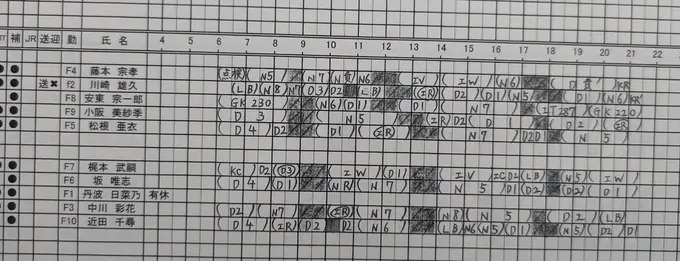 補 JR 送迎 動 氏 名 4 5 6 7 8 9 10 11 12 13 14 15 16 17 18 19 20 21 22
F4 藤本 宗孝 (点検)(N5) (N7)(N貴)N6 (IV)(IW)(N6) (D貴)KR
送✖ f2 川崎 雄久 (LB)(N8)(N7)(D3)(D2)(LB) (IR)(D2)(D1)(N5) (D1)(N6)KR
F8 安東 宗一郎 (GK230 (N6)(D1) (D1)(N7) (IT287)(GK220)
F9 小阪 美紗季 (D3)(N5) (IR)(D2)(D1) (D2)(IR)
F5 松根 亜衣 (D4)(D2) (D1)(IR) (N7)(D2D) (N5)
F7 梶本 武嗣 (KC)(D2)(D3) (IW)(D1) (IV)(IC)(D2)(LB) (N5)(IW)
F6 坂 唯志 (D4)(D1) (NR)(N7) (N5)(D1)(D2) (D2)(D1)
F1 丹波 日菜乃 有休
F3 中川 彩花 (D2)(N7) (IR)(N7) (N8)(N5) (D2)(LB)
F10 近田 千尋 (D4)(IR)(D2) D2(N6) (LB)(N6)(N5)(D1) (N5)(D2)D1